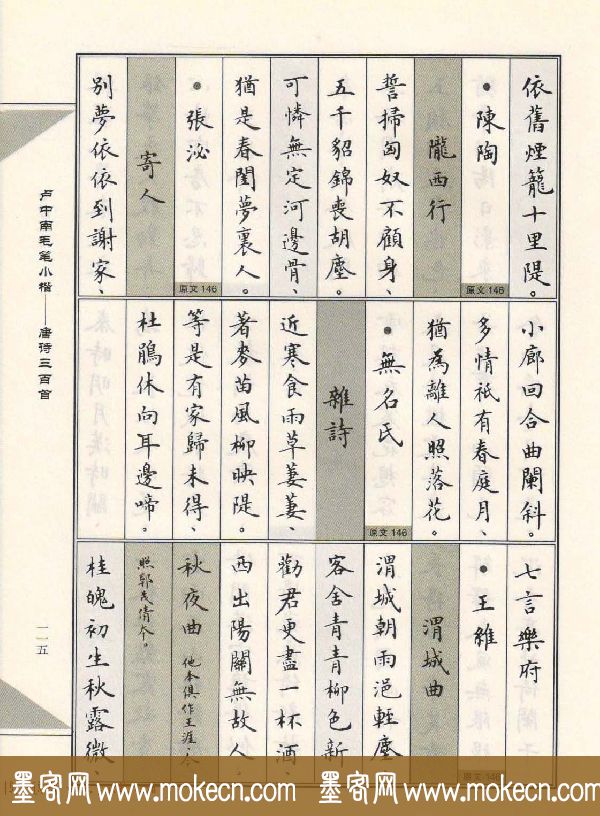 依舊煙籠十里隄。
●陳陶
原文146
隴西行
誓掃匈奴不顧身、
五千貂錦喪胡塵。
可憐無定河邊骨、
猶是春閨夢裏人。
原文146
●張泌
寄人
別夢依依到謝家、
小廊回合曲闌斜。
多情祇有春庭月、
猶為離人照落花。
●無名氏
原文146
雜詩
近寒食雨草萋萋、
著麥苗風柳映隄。
等是有家歸未得、
杜鵑休向耳邊啼。
七言樂府
●王維
原文146
渭城曲
渭城朝雨浥輕塵
客舍青青柳色新
勸君更盡一杯酒、
西出陽關無故人。
秋夜曲 他本俱作王涯今
照郭茂倩本。
桂魄初生秋露微、
卢中南毛笔小楷——唐诗三百首
一一五
墨客网 www.mokecn.com 墨客网 www.mokecn.com